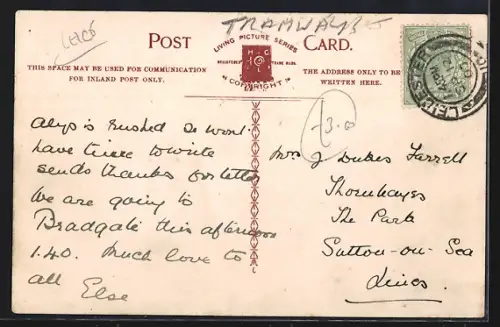 LEICS
TRAMWAYS
POST CARD.
LIVING PICTURE SERIES
REGISTERED TRADE MARK.
COPYRIGHT
THIS SPACE MAY BE USED FOR COMMUNICATION
FOR INLAND POST ONLY.
THE ADDRESS ONLY TO BE
WRITTEN HERE.
LEICESTER
13.0
Alys is rushed so wont
have time to write
sends thanks for letter
We are going to
Bradgate this afternoon
1.40. Much love to
all Else
Mrs J Dukes Farrell
Thornhayes
The Park
Sutton-on-Sea
Lincs.